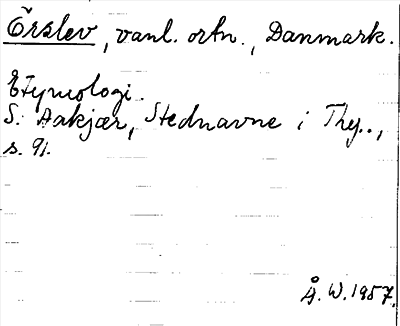 Örslev, vanl. ortn., Danmark.
Etymologi.
S. Aakjær, Stednavne i Thy..,
s. 91.
Å. W. 1957.